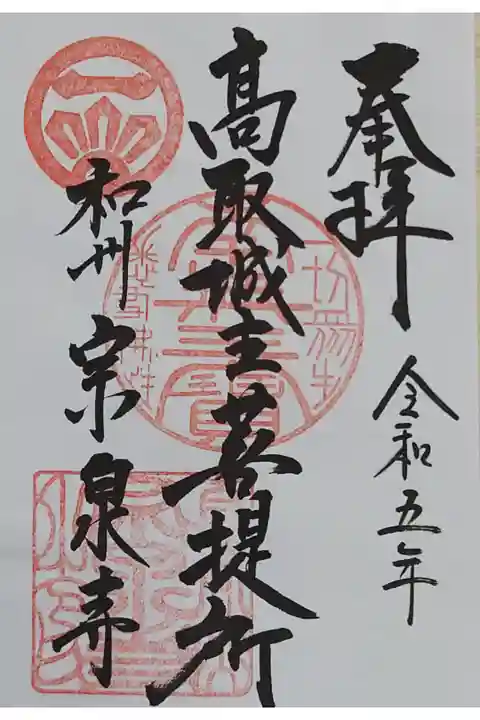 奉拝
令和五年
髙取城主菩提所
和州宗泉寺